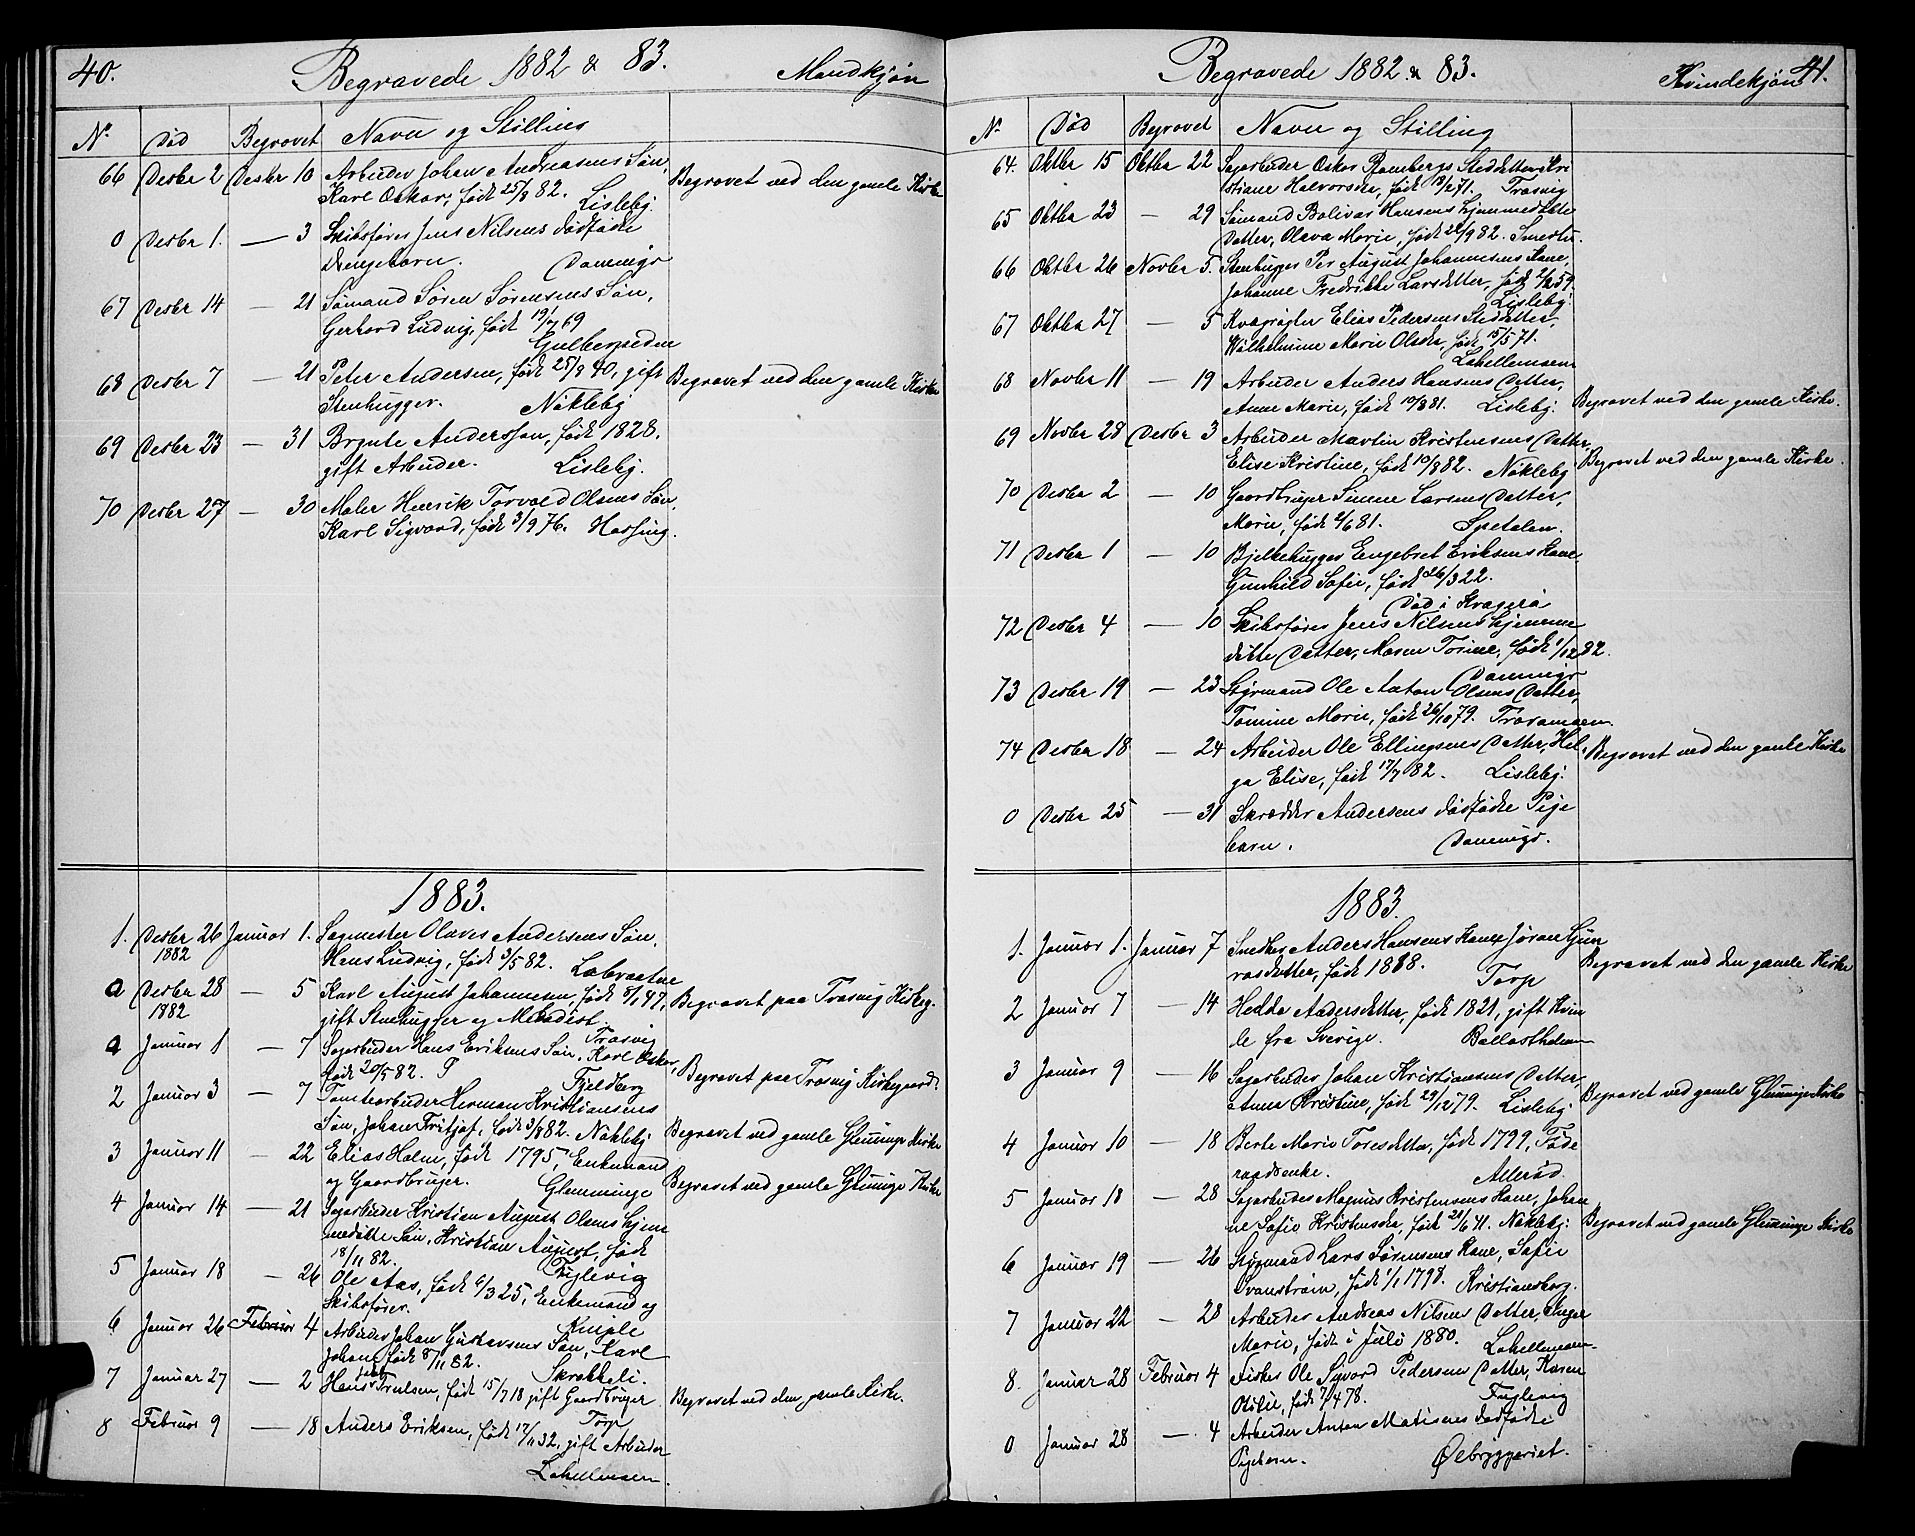 40.
Begravede 1882 & 83.
Mandkjøn
No
Død
Begravet
Navn og Stilling
66 Desbr 2 Desbr 10 Arbeider Johan Andreasens Søn,
Karl Oskar, født 25/8 82. Lisleby.
Begravet ved den gamle Kirke
0 Desbr 1. — 3 Skibsfører Jens Nilsens dødfødte
Drengebarn. Damningø
67 Desbr 14 — 21 Sømand Søren Sørensens Søn,
Gerhard Ludvig, født 19/7 69
68 Desbr 7 — 21 Peter Andersen, født 25/9 40, gift
Stenhugger. Nøkleby
Begravet ved den gamle Kirke
69 Desbr 23 — 31 Brynte Anderssen, født 1828.
gift Arbeider. Lisleby.
70 Desbr 27 — 30 Maler Henrik Torvald Olsens Søn,
Karl Sigvard, født 3/9 76. Hassing.
1883.
1. Desbr 26 Januar 1. Sagmester Olaves Andersens Søn,
1882
Hans Ludvig, født 9/5 82.
a Desbr 28 — 5 Karl August Johannesen, født 8/1 47,
1882
gift Stenhugger og Methodist.
Trosvig
Begravet paa Trosvig Kirkeg.
a Januar 1 — 7 Sagarbeider Hans Eriksens Søn, Karl Oskar,
født 20/5 82. Fjeldberg
Begravet paa Trosvig Kirkegaard
2 Januar 3 — 7 Tomtearbeider Herman Kristiansens
Søn, Johan Fritjof, født 3/8 82. Nøkleby
Begravet ved gamle Glemminge Kirke
3 Januar 11 — 22 Elias Holm, født 1795, Enkemand
og Gaardbruger. Glemminge
Begravet ved gamle Glemminge Kirke
4 Januar 14 — 21 Sagarbeider Kristian August Olsens hjem
medøbte Søn, Kristian August, født
18/11 82. Fuglevig
5 Januar 18 — 26 Ole Aas, født 6/3 25, Enkemand og
Skibsfører. Kniple
6 Januar 26 Februar 4 Arbeider Johan Gustavsens Søn, Karl
Johan, født 8/11 82. Skrakkeli.
7 Januar 27 — 2 Hans Trulsen, født 15/7 18 gift Gaardbruger
Torp
Begravet ved den gamle Kirke.
8 Februar 9 — 18 Anders Eriksen, født 12/11 32, gift Arbeider
Lahellemoen.
Begravede 1882 & 83.
Kvindekjøn
41.
No
Død
Begravet
Navn og Stilling
64. Oktbr 15 Oktbr 22 Sagarbeider Oskar Rambergs Steddatter Kri
stiane Halvorsdtr, født 18/2 71. Trosvig
65 Oktbr 23 — 29 Sømand Bolivar Hansens hjemmedøbte
Datter, Olava Marie, født 22/9 82.
66 Oktbr 26 Novbr 5. Stenhugger Per August Johannesens Kone,
Johanne Fredrikke Larsdatter, født 2/12 59.
Lisleby.
67 Oktbr 27 — 5 Kvægrøgter Elias Pedersens Steddatter,
Wilhelmine Marie Olsdtr, født 15/5 71.
Lahellemoen
68 Novbr 11 — 19 Arbeider Anders Hansens Datter,
Anne Marie, født 10/8 81. Lisleby.
Begravet ved den gamle Kirke.
69 Novbr 28 Desbr 3 Arbeider Martin Kristensens Datter,
Elise Kristine, født 10/8 82. Nøkleby
Begravet ved den gamle Kirke.
70 Desbr 2 — 10 Gaardbruger Simen Larsens Datter,
Marie, født 2/6 81. Spetalen.
71 Desbr 1 — 10 Bjelkehugger Engebret Eriksens Kone,
Gunhild Sofie, født 26/3 22.
Død i Kragerø
72 Desbr 4 — 10 Skibsfører Jens Nilsens hjemme
døbte Datter, Maren Torine, født 1/12 82.
Damningø
73 Desbr 19 — 23 Styrmand Ole Anton Olsens Datter,
Tomine Marie, født 26/10 79.
74 Desbr 18 — 24 Arbeider Ole Ellingsens Datter, Hel
ga Elise, født 17/7 82. Lisleby.
Begravet ved den gamle Kirke
0 Desbr 25 — 31 Skrædder Andersens dødfødte Pige
barn. Damningø.
1883.
1. Januar 1. Januar 7 Snedker Anders Hansens Kone Jøran Gun
rasdatter, født 1818. Torp
Begravet ved den gamle Kirke
2 Januar 7 — 14 Hedda Andersdatter, født 1821, gift Kvin
de fra Sverige. Ballastholmen
3 Januar 9 — 16 Sagarbeider Johan Kristiansens Datter,
Anna Kristine, født 29/12 79. Lisleby
Begravet ved gamle Glemminge Kirke
4 Januar 10 — 18 Berte Marie Toresdatter, født 1799, Føde
raadsenke. Allerød.
5 Januar 18 — 28 Sagarbeider Magnus Kristensens Kone, Johan
ne Sofie Kristensdtr, født 21/6 41. Nøkleby.
Begravet ved gamle Glemminge Kirke
6 Januar 19 — 26 Styrmand Lars Sørensens Kone, Sofie
Svanstrøm, født 1/1 1798. Kristiansborg.
7 Januar 22 — 28 Arbeider Andreas Nilsens Datter, Inger
Marie, født i Juli 1880. Lahellemoen
8. Januar 28 Februar 4 Fisker Ole Sigvard Pedersens Datter, Karen
Otilie, født 7/4 78. Fuglevig
0 Januar 28 — 4 Arbeider Anton Matisens dødfødte
Pigebarn. Ølebryggeriet.